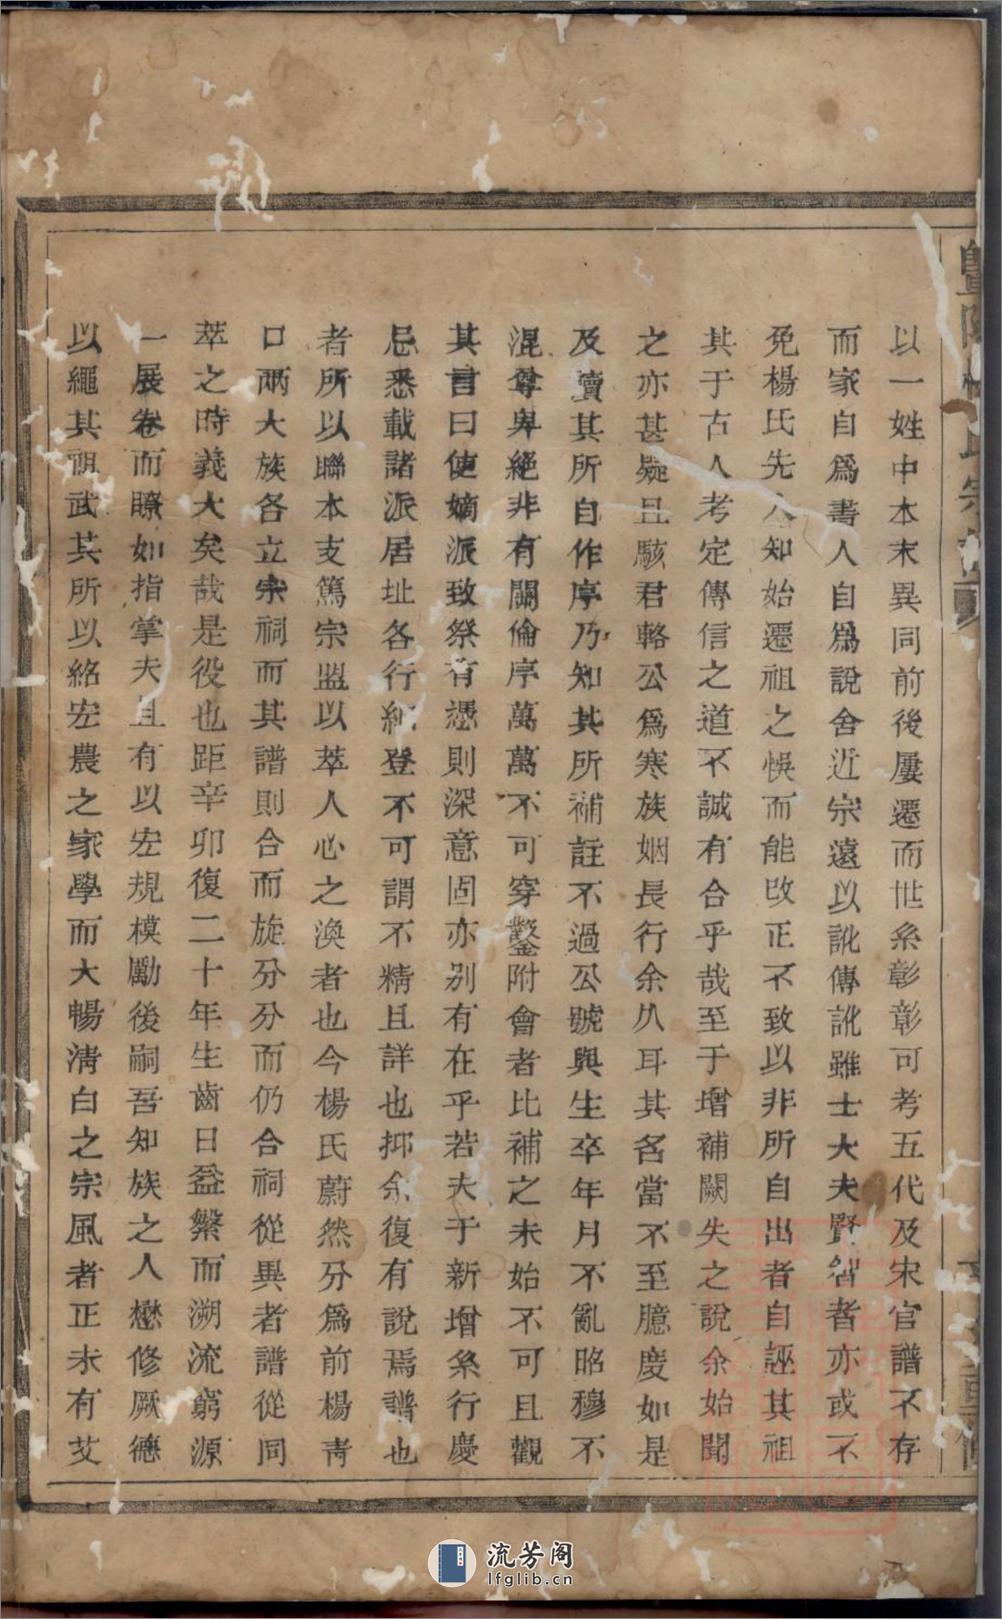 以一姓中本末異同前後屢遷而世系彰彰可考五代及宋官譜不存
而家自爲書人自爲說舍近宗遠以訛傳訛雖士大夫賢智者亦或不
免楊氏先人知始遷祖之悞而能改正不致以非所自出者自誣其祖
其于古人考定傳信之道不誠有合乎哉至于增補闕失之說余始聞
之亦甚疑且駭君輅公爲寒族姻長行余仄耳其名當不至臆度如是
及讀其所自作序乃知其所補註不過公號與生卒年月不亂昭穆不
混尊卑絕非有關倫序萬萬不可穿鑿附會者比補之未始不可且觀
其言曰使嫡派致祭有憑則深意固亦别有在乎若夫于新增系行慶
忌悉載諸派居址各行細登不可謂不精且詳也抑余復有說焉譜也
者所以聯本支篤宗盟以萃人心之渙者也今楊氏蔚然分爲前楊靑
口兩大族各立宗祠而其譜則合而旋分分而仍合祠從異者譜從同
萃之時義大矣哉是役也距辛卯復二十年生齒日益繁而溯流窮源
一展卷而瞭如指掌夫且有以宏規模勵後嗣吾知族之人懋修厥德
以繩其祖武其所以紹宏農之家學而大暢淸白之宗風者正未有艾
暨陽
氏宗
流芳阁
lfglib.cn